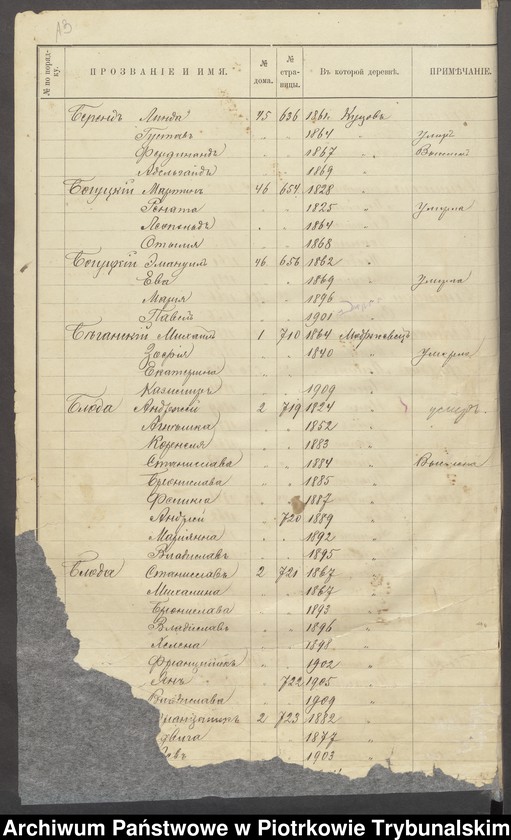 13
№ по поряд-ку. ПРОЗВАНІЕ И ИМЯ. № дома. № стра-ницы. Въ которой деревнѣ. ПРИМѢЧАНІЕ.
Берендъ 45 636 1861 Куцовъ
Густавъ 1864
Фердинандъ 1867
1869
Богуцкій Мартинъ 46 654 1828
Рената 1825 Умерла
Леопольдъ 1864
Отылия 1868
Богуцкій Эмануил 46 656 1862
Ева 1869 Умерла
Мария 1896
Павел 1901
Бѣганскій Михаил 1 710 1864
Зофія 1840 Умерла
Екатерина
Казимиръ 1909
Блюда Андржей 2 719 1824
1852
Корнелія 1883
Станислава 1884
Бронислава 1885
1887
Андржей 720 1889
Маріянна 1892
Владиславъ 1895
Блюда Станиславъ 2 721 1867
Михалина 1867
Бронислава 1893
Владиславъ 1896
Хелена 1898
Францишекъ 1902
Янъ 722 1905
1909
2 723 1882
1877
1903
Archiwum Państwowe w Piotrkowie Trybunalskim